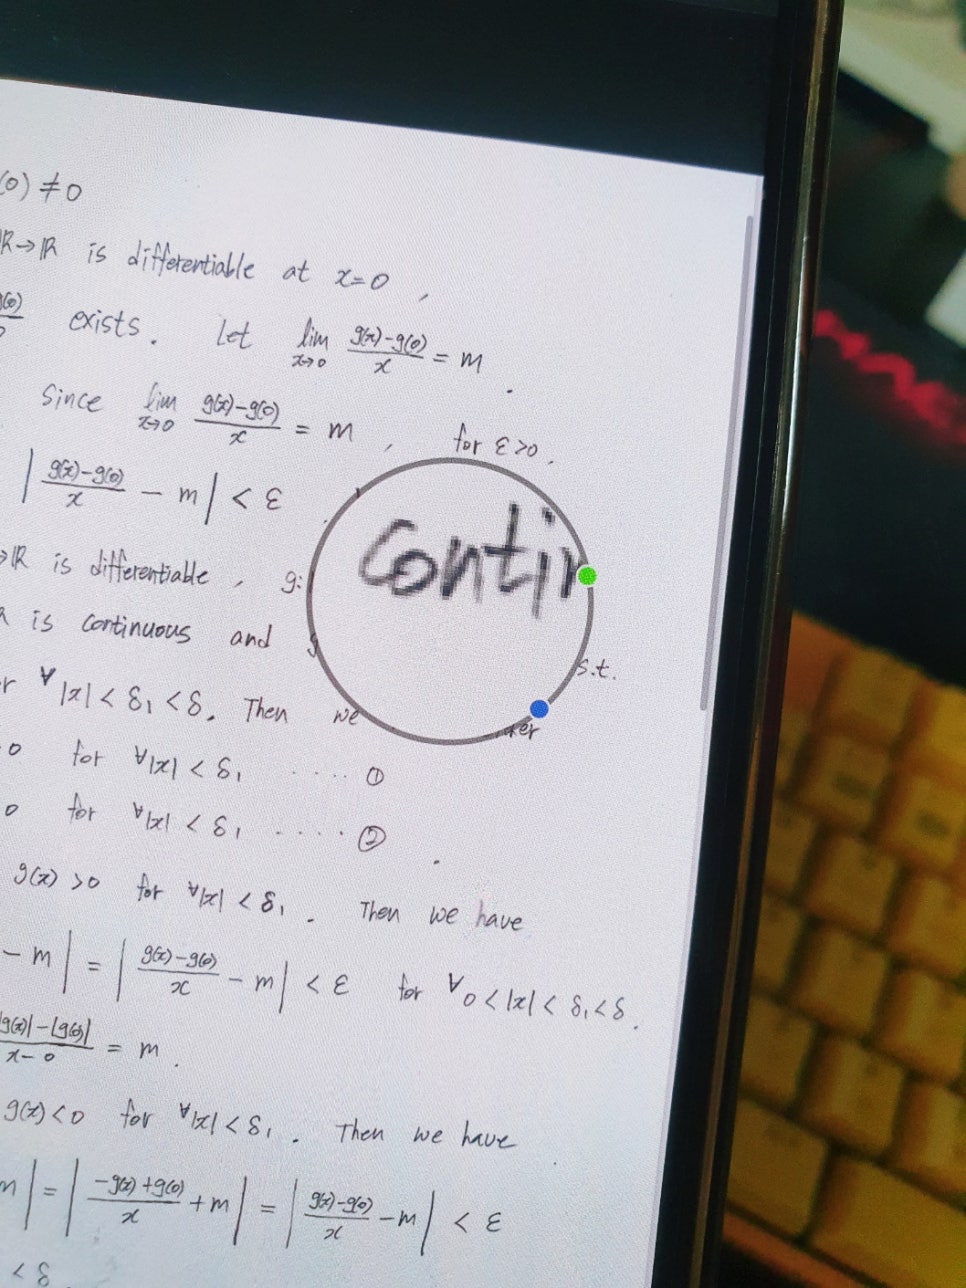 (0) ≠ 0
R→ℝ is differentiable at x=0,
g(0) exists. Let lim x→0 g(x)-g(0)/x = m.
Since lim x→0 g(x)-g(0)/x = m, for ε>0,
| g(x)-g(0)/x - m | < ε
contin
→ℝ is differentiable, g:
is continuous and g s.t.
r ∀|x| < δ₁ < δ. Then we
0 for ∀|x| < δ₁ ····· ①
0 for ∀|x| < δ₁ ····· ②.
g(x) > 0 for ∀|x| < δ₁. Then we have
- m | = | g(x)-g(0)/x - m | < ε for ∀0<|x| < δ₁<δ.
|g(x)|-|g(0)|/x-0 = m.
g(x) < 0 for ∀|x| < δ₁. Then we have
m | = | -g(x)+g(0)/x + m | = | g(x)-g(0)/x - m | < ε
< δ